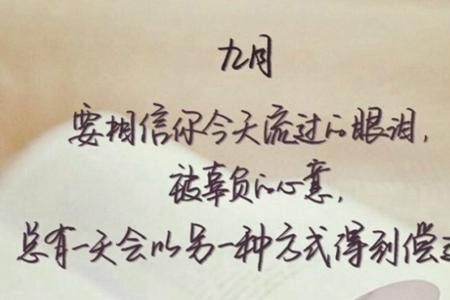 九月
要相信你今天流过的眼泪,
被辜负的心意,
总有一天会以另一种方式得到偿